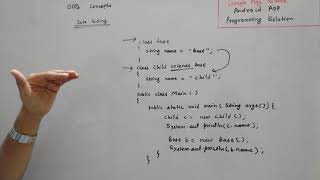 OOPs Concepts
Data Hiding
Google Play Store
Android App
Programming Solution
class Base
{
String name = "Base";
}
class Child extends Base
{
String name = "Child";
}
public class Main {
public static void main(String args[]) {
Child c = new Child();
System.out.println(c.name);
Base b = new Base();
System.out.println(b.name);
} }